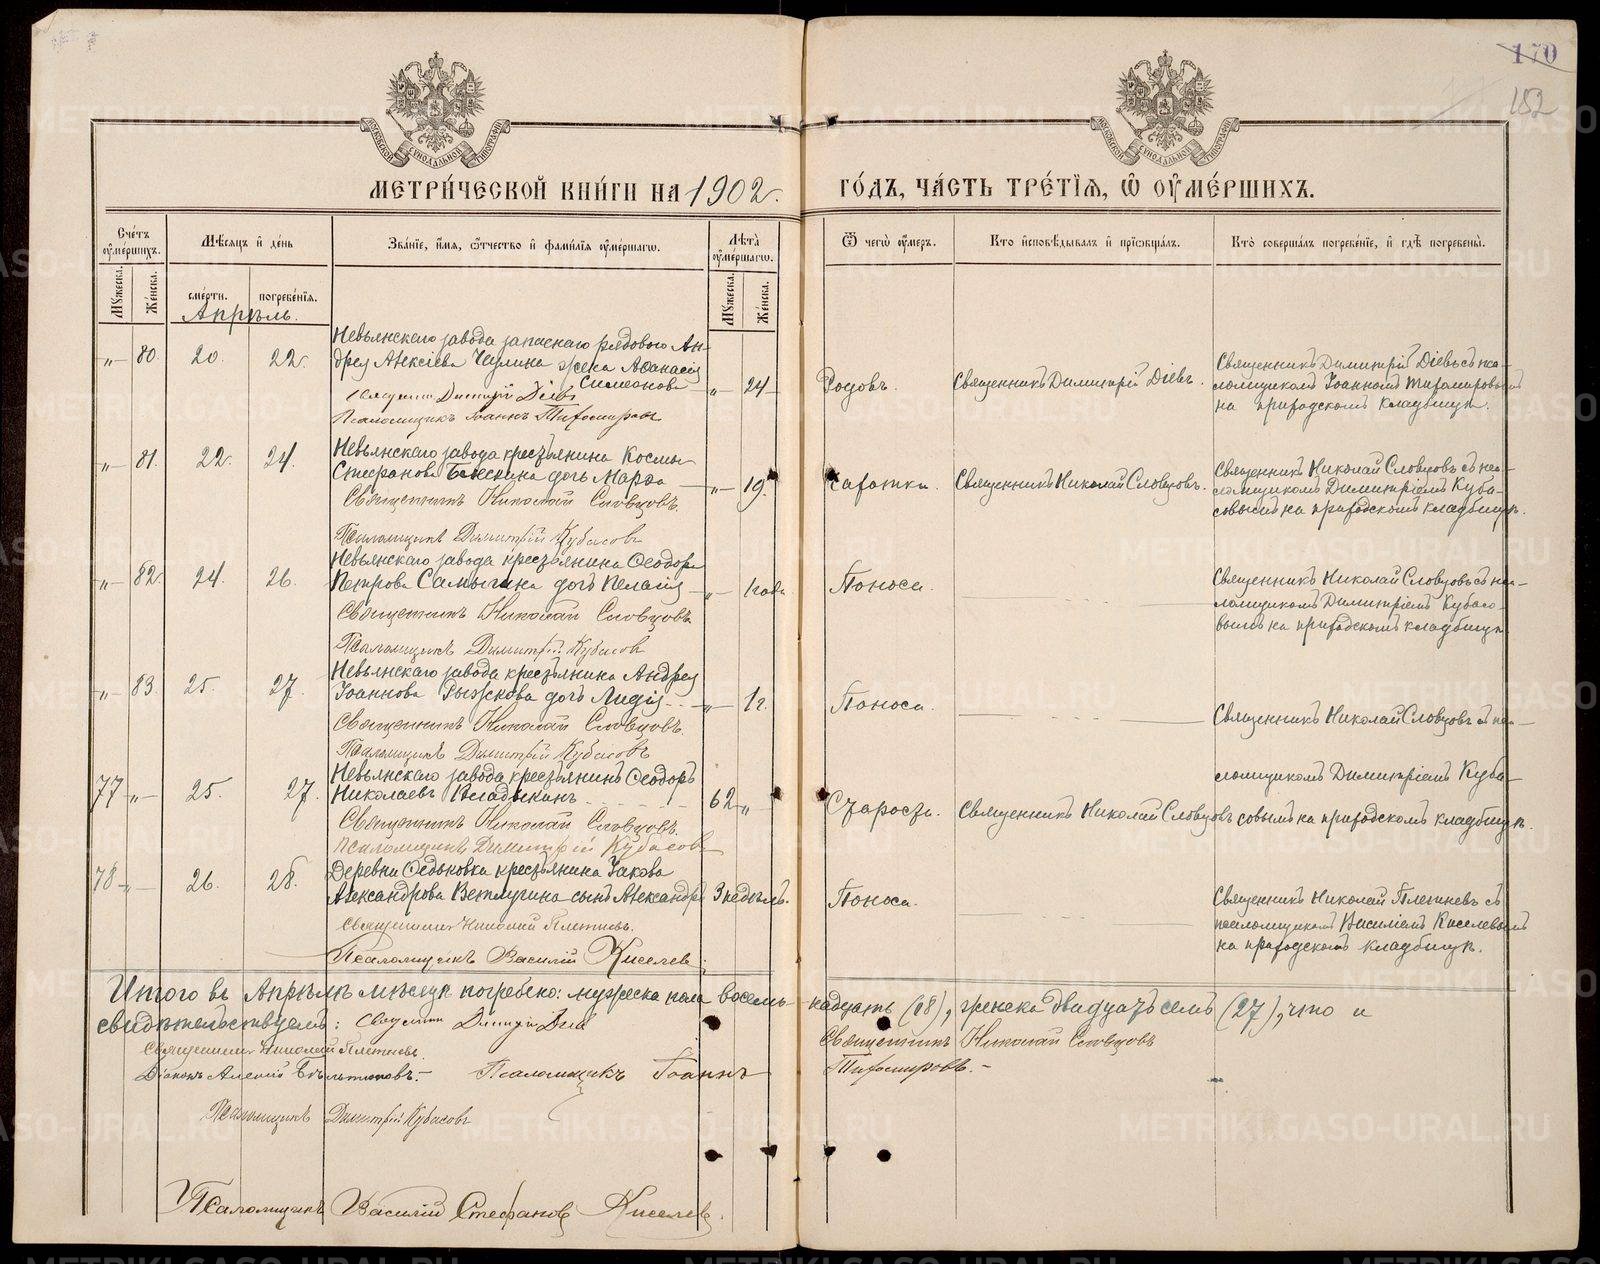 170
152
МЕТРИ́ЧЕСКОЙ КНИ́ГИ НА 1902 г. ГО́ДЪ, ЧА́СТЬ ТРЕ́ТІѦ, Ѿ ОУМЕ́РШИХЪ.
Сче́тъ оуме́ршихъ.
Мѣ́сяцъ и де́нь
Зва́ніе, и́мя, о́тчество и фами́лія оуме́ршагѡ.
Лѣ́та оуме́ршагѡ.
Ѿ чегѡ̀ оу́меръ.
Кто и҆сповѣ́дывалъ и҆ прїѡбща́лъ.
Кто̀ соверша́лъ погребе́ніе, и҆ гдѣ̀ погребены̀.
Му́жеска. Же́нска.
сме́рти. погребе́нія.
Му́жеска. Же́нска.
Апрѣль.
Невьянскаго завода запаснаго рядового Ан-
„ 80. 20. 22. дрея Алексіева Чаулина жена Аѳанасія
Симеонова „ 24
Священникъ Димитрій Діевъ
Псаломщикъ Іоаннъ Тихомировъ
Родовъ. Священникъ Димитрій Діевъ.
Священникъ Димитрій Діевъ съ пса-
ломщикомъ Іоанномъ Тихомировымъ
на приходскомъ кладбищѣ.
Невьянскаго завода крестьянина Космы
„ 81. 22. 24. Стефанова дочь Марѳа „ 19.
Священникъ Николай Словцовъ.
Псаломщикъ Димитрій Кубасовъ
Чахотки. Священникъ Николай Словцовъ.
Священникъ Николай Словцовъ съ пса-
ломщикомъ Димитріемъ Куба-
совымъ на приходскомъ кладбищѣ.
Невьянскаго завода крестьянина Ѳеодора
„ 82. 24. 26. Петрова Самыгина дочь Пелагія „ 1 года
Священникъ Николай Словцовъ
Псаломщикъ Димитрій Кубасовъ
Поноса.
Священникъ Николай Словцовъ съ пса-
ломщикомъ Димитріемъ Кубасо-
вымъ на приходскомъ кладбищѣ
Невьянскаго завода крестьянина Андрея
„ 83. 25. 27. Іоаннова Рыжкова дочь Лидія „ 1 г.
Священникъ Николай Словцовъ.
Псаломщикъ Димитрій Кубасовъ
Поноса.
Священникъ Николай Словцовъ съ пса-
ломщикомъ Димитріемъ Куба-
совымъ на приходскомъ кладбищѣ.
Невьянскаго завода крестьянинъ Ѳеодоръ
77 „ 25. 27. Николаевъ Владыкинъ 62 „
Священникъ Николай Словцовъ.
Псаломщикъ Димитрій Кубасовъ
Старости. Священникъ Николай Словцовъ
Деревни Ѳедьковка крестьянина Іакова
78 „ 26. 28. Александрова Ветлугина сынъ Александръ 3 недѣль.
Священникъ Николай Плетневъ.
Псаломщикъ Василій Киселевъ.
Поноса.
Священникъ Николай Плетневъ съ
псаломщикомъ Василіемъ Киселевымъ
на приходскомъ кладбищѣ.
Итого въ Апрѣлѣ мѣсяцѣ погребено: мужеска пола восемь-надцать (18), женска двадцать семь (27), что и
свидѣтельствуемъ: Священникъ Димитрій Діевъ Священникъ Николай Словцовъ
Священникъ Николай Плетневъ.
Діаконъ Алексій Бѣльтюковъ. Псаломщикъ Іоаннъ Тихомировъ.
Псаломщикъ Димитрій Кубасовъ
Псаломщикъ Василій Стефановъ Киселевъ.
METRIKI.GASO-URAL.RU